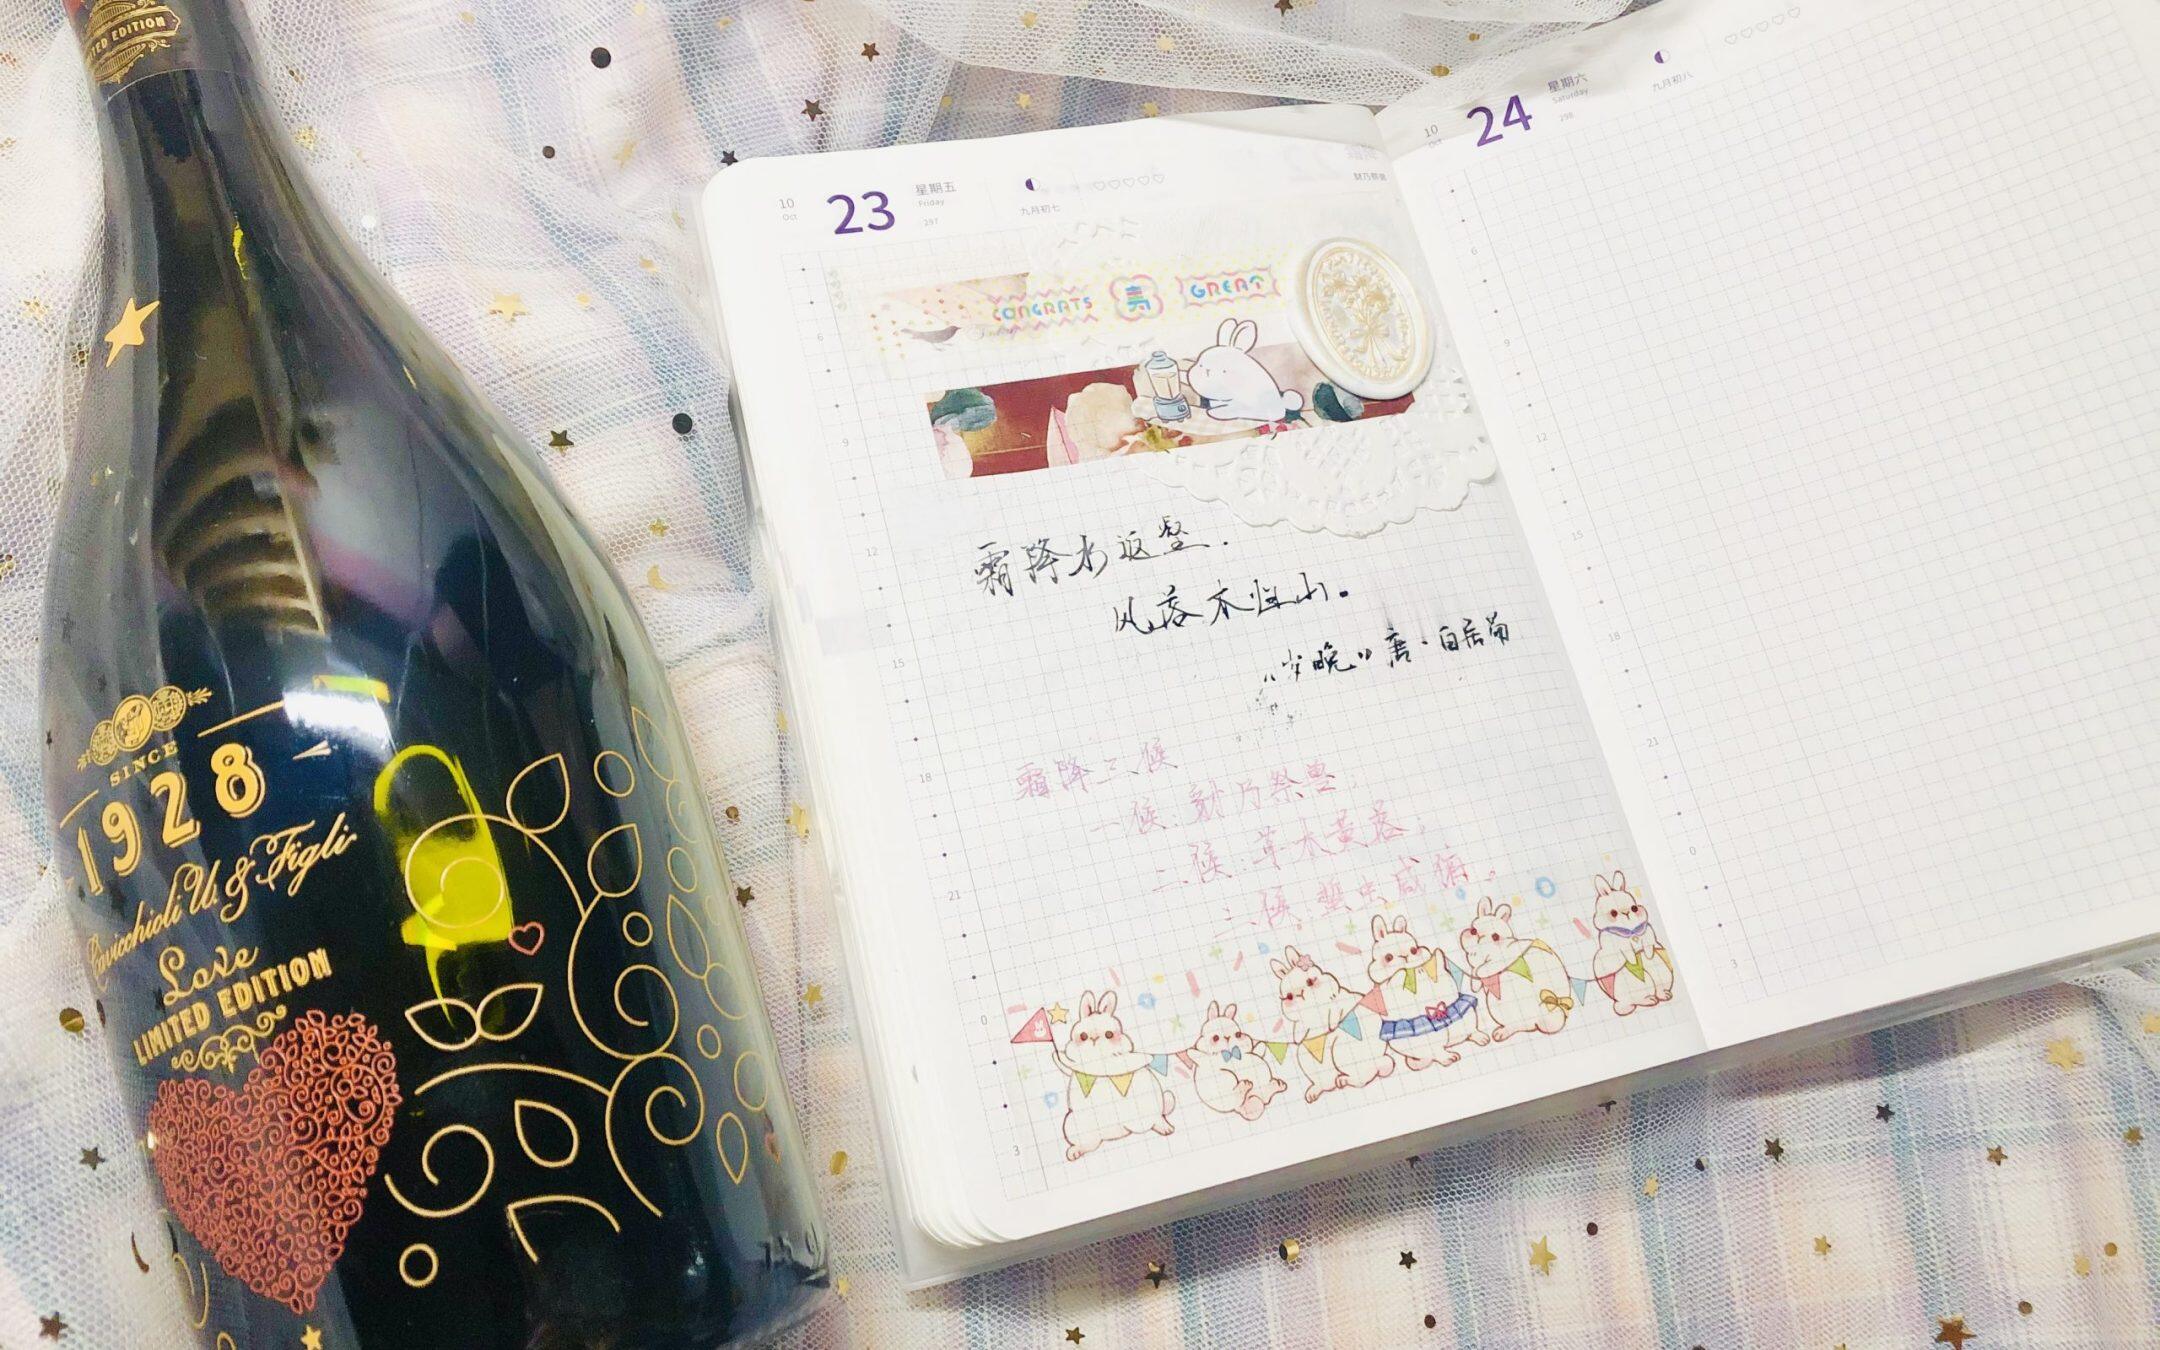 LIMITED EDITION
SINCE
1928
Cavicchioli U. & Figli
Love
LIMITED EDITION
10
Oct
23
星期五
Friday
297
九月初七
CONGRATS 寿 GREAT
6
9
12
15
18
21
0
3
霜降水返壑.
风落木归山。
《岁晚》唐·白居易
霜降三候
一候:豺乃祭兽;
二候:草木黄落;
三候:蛰虫咸俯。
10
Oct
24
星期六
Saturday
298
九月初八
6
9
12
15
18
21
0
3